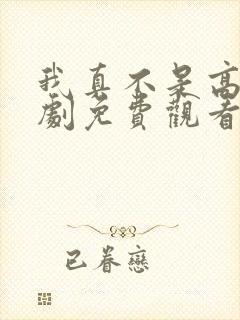 我真不呆高
劇免費觀看
已眷戀